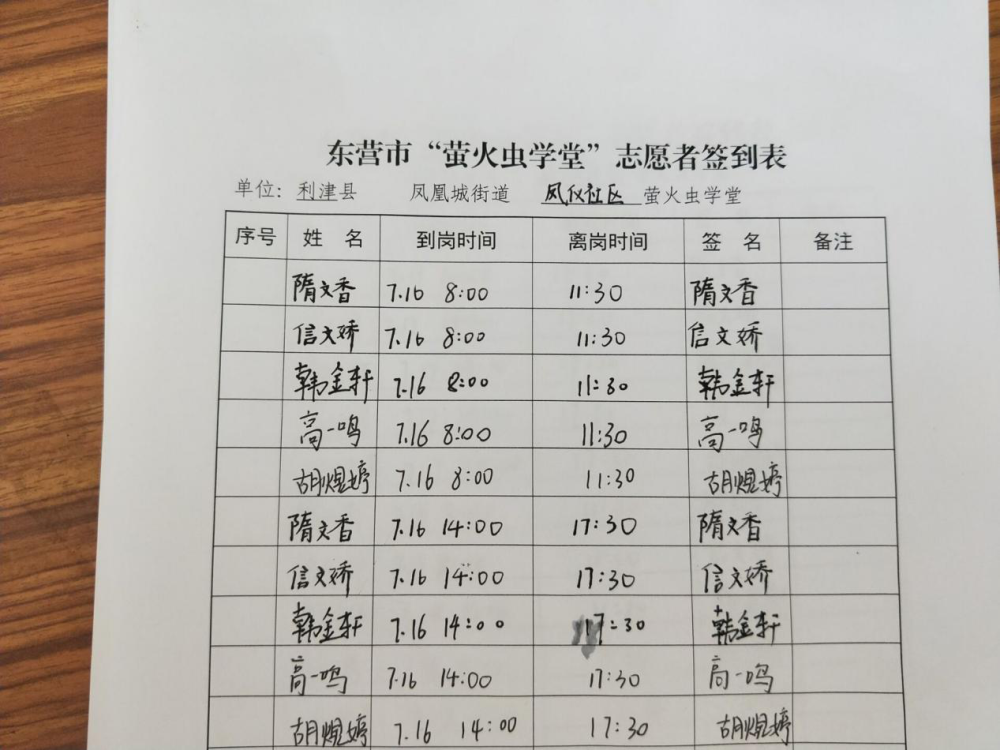 东营市“萤火虫学堂”志愿者签到表
单位：利津县 凤凰城街道 凤仪社区 萤火虫学堂
序号 姓 名 到岗时间 离岗时间 签 名 备注
隋文香 7.16 8:00 11:30 隋文香
信文娇 7.16 8:00 11:30 信文娇
韩金轩 7.16 8:00 11:30 韩金轩
高一鸣 7.16 8:00 11:30 高一鸣
胡煜婷 7.16 8:00 11:30 胡煜婷
隋文香 7.16 14:00 17:30 隋文香
信文娇 7.16 14:00 17:30 信文娇
韩金轩 7.16 14:00 17:30 韩金轩
高一鸣 7.16 14:00 17:30 高一鸣
胡煜婷 7.16 14:00 17:30 胡煜婷